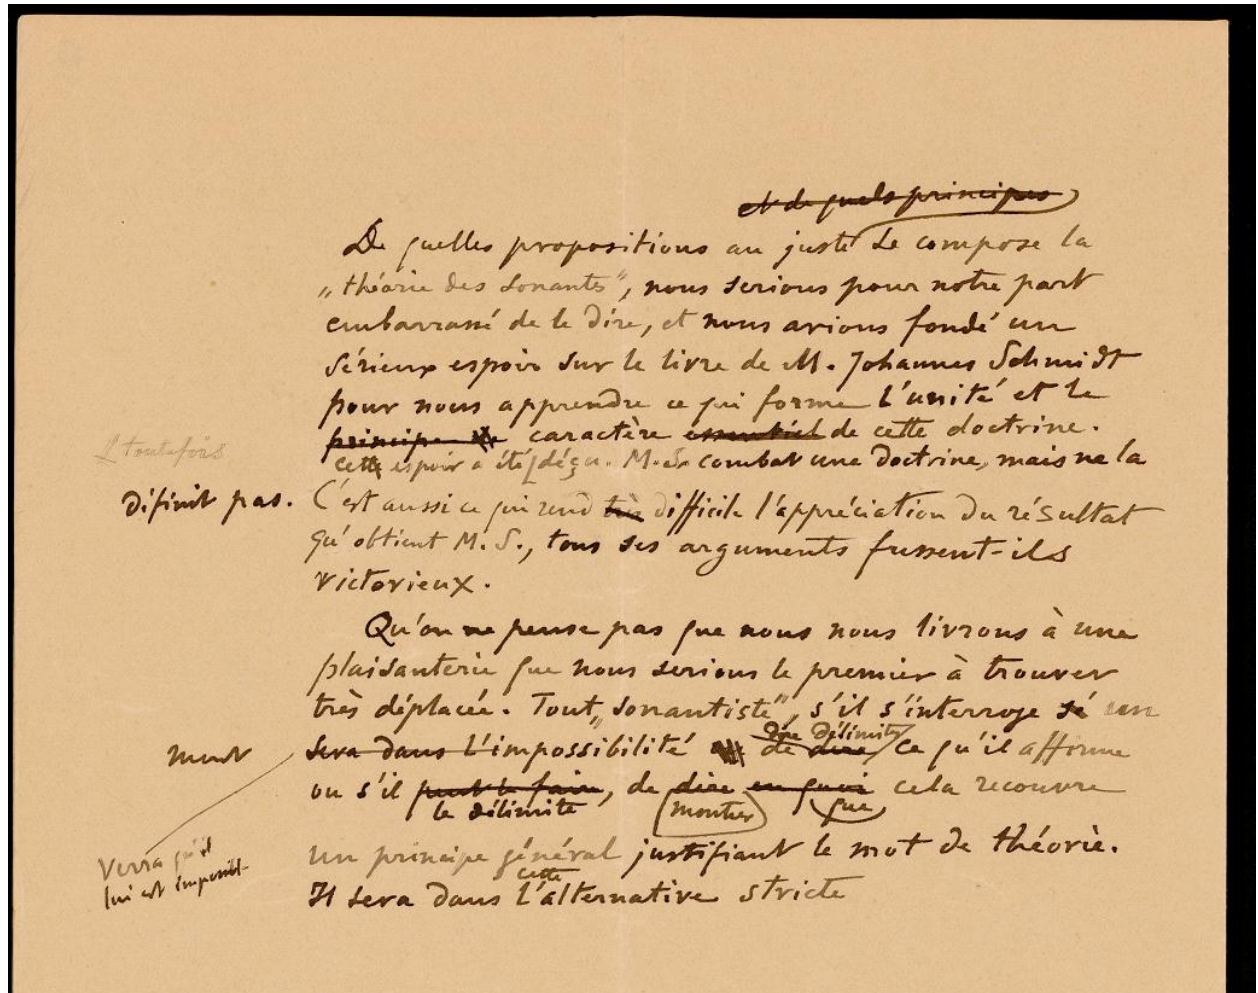 et de quels principes
De quelles propositions au juste se compose la
„théorie des sonantes", nous serions pour notre part
embarrassé de le dire, et nous avions fondé un
sérieux espoir sur le livre de M. Johannes Schmidt
pour nous apprendre ce qui forme l'unité et le
principe caractère essentiel de cette doctrine.
toutefois
cette espoir a été déçu. M. S. combat une doctrine, mais ne la
définit pas. C'est aussi ce qui rend très difficile l'appréciation du résultat
qu'obtient M. S., tous ses arguments fussent-ils
victorieux.
Qu'on ne pense pas que nous nous livrons à une
plaisanterie que nous serions le premier à trouver
très déplacée. Tout „sonantiste", s'il s'interroge sé un
dire délimiter
ment sera dans l'impossibilité de dire ce qu'il affirme
ou s'il peut le faire, de dire en quoi cela recouvre
le délimite montrer que
verra qu'il
lui est impossibl-
un principe général justifiant le mot de théorie.
cette
Il sera dans l'alternative stricte